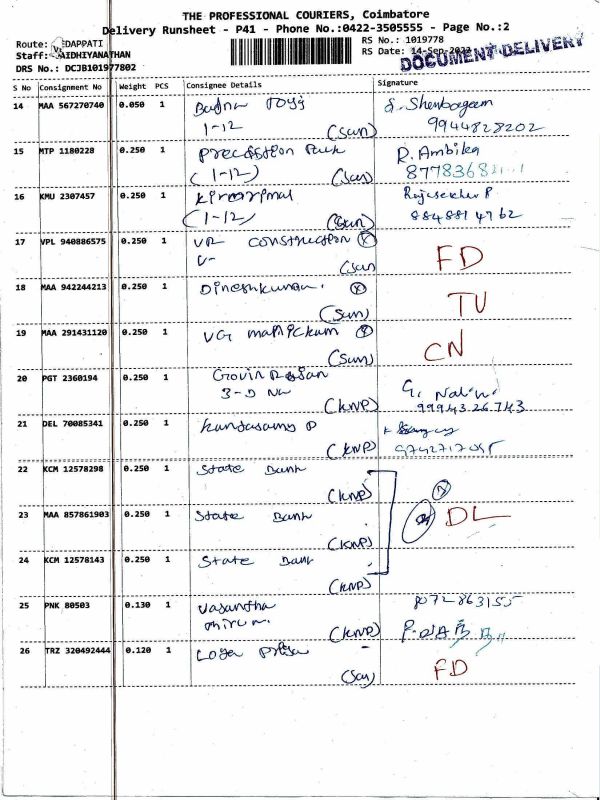 THE PROFESSIONAL COURIERS, Coimbatore
Delivery Runsheet - P41 - Phone No.:0422-3505555 - Page No.:2
Route: EDAPPATI
RS No.: 1019778
Staff: VAIDHIYANATHAN
RS Date: 14-Sep-2023
DOCUMENT DELIVERY
DRS No.: DCJB101977802
S No Consignment No Weight PCS Consignee Details Signature
14 MAA 567270740 0.050 1
1-12 (Sun) 9944828202
15 MTP 1180228 0.250 1 R. Ambika
(1-12) (Sun)
16 KMU 2307457 0.250 1
(1-12) (Sun) 8848814762
17 VPL 940886575 0.250 1 VR construction
(Sun FD
18 MAA 942244213 0.250 1 Dineshkumar.
(Sun) TU
19 MAA 291431120 0.250 1 VG manickum
(Sun) CN
20 PGT 2360194 0.250 1
(KNP) 9994326743
21 DEL 70085341 0.250 1 Kandasamy P
(KNP)
22 KCM 12578298 0.250 1 State Bank
(KNP)
23 MAA 857861903 0.250 1 State Bank DL
(KNP)
24 KCM 12578143 0.250 1 State Bank
(KNP)
25 PNK 80503 0.130 1 Vasantha 8072863155
(KNP)
26 TRZ 320492444 0.120 1 Loga Priya
FD